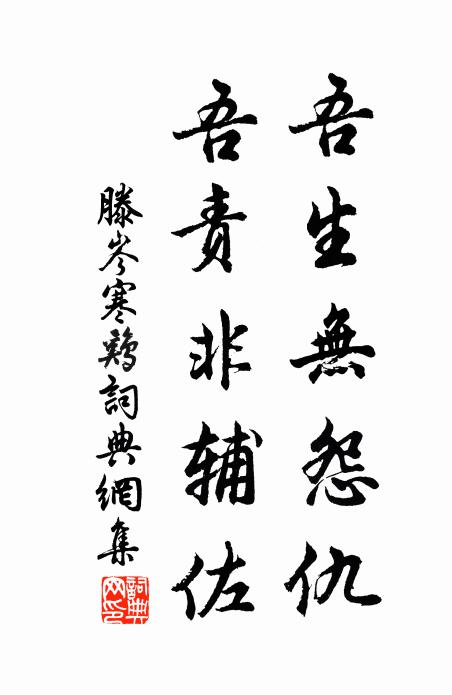 吾生無怨仇
吾責非辅佐
滕岑寒鷄詞典網集
詞典網印